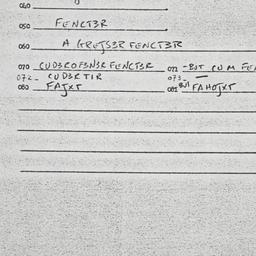 040
050 FENCT3R
060 A GREJS3R FENCT3R
070 CUD3ROF3N3R FENCT3R 071 -BUT CUM FE
072- CUD3R TIR 073- —
080 FAJXT 081 BUT FAHOJXT